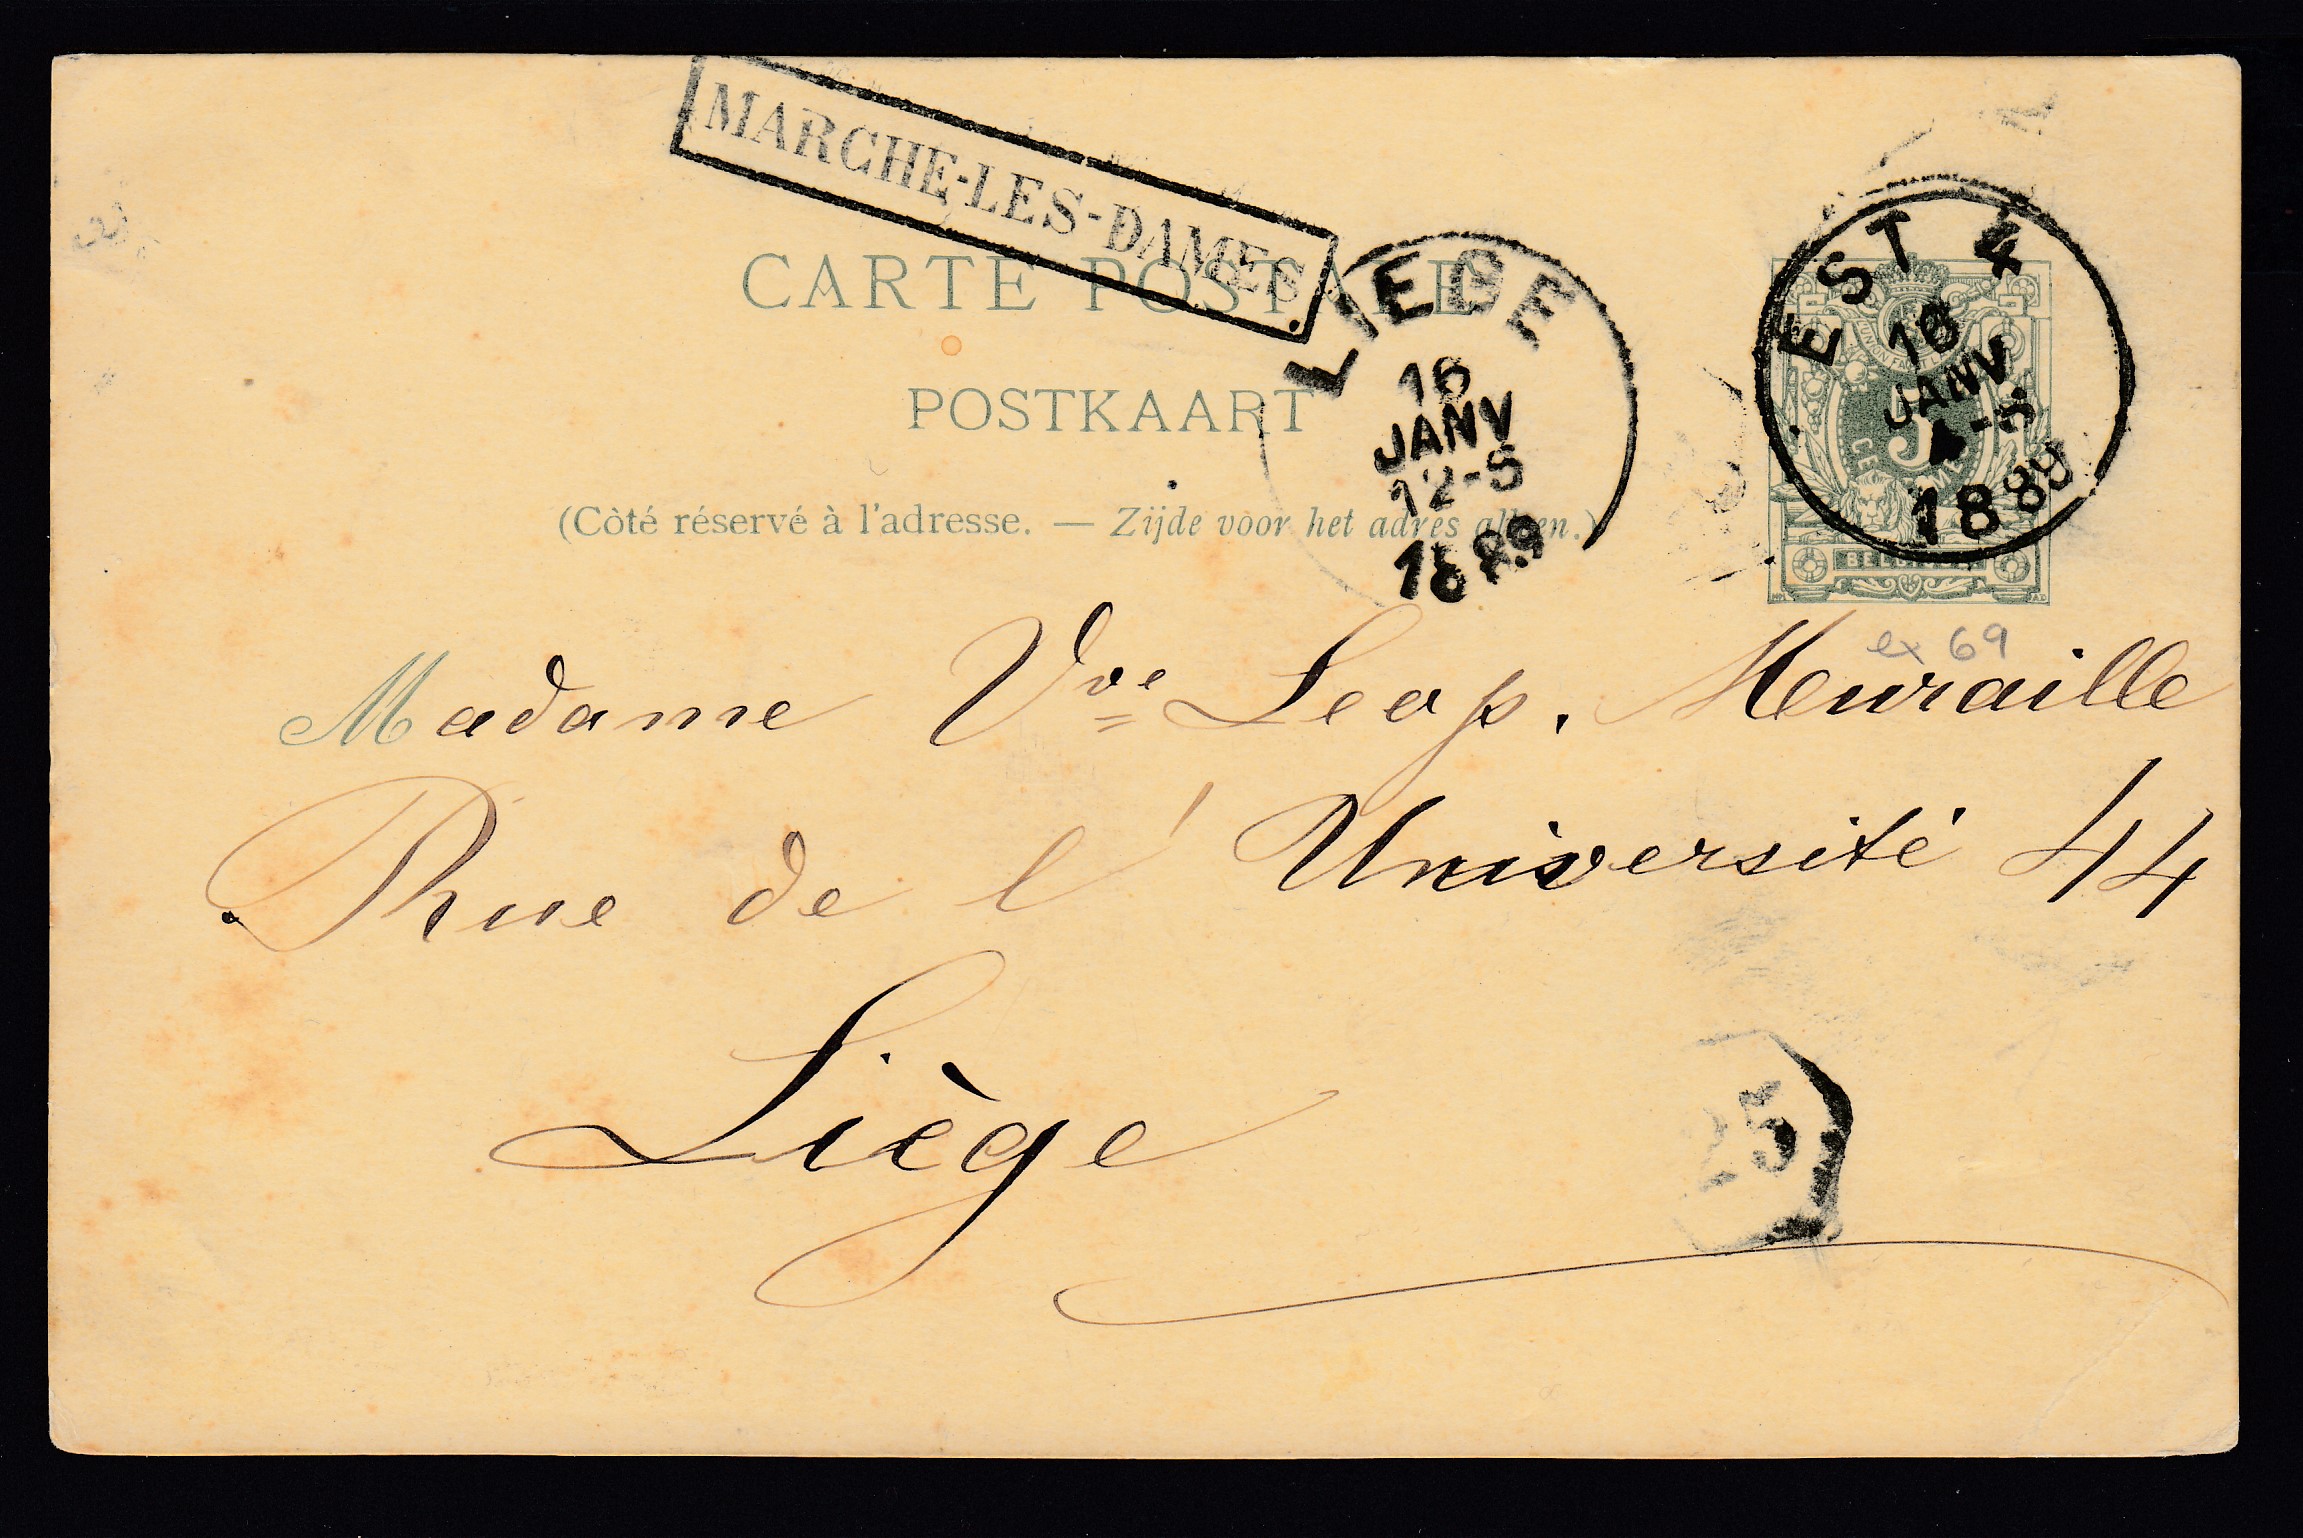 MARCHE-LES-DAMES
CARTE POSTALE
POSTKAART
(Côté réservé à l'adresse. — Zijde voor het adres alleen.)
LIEGE
16
JANV
12-S
1889
EST 4
16
JANV
4-S.
1889
UNION FAIT LA
5
CENTIMES
BELGIQUE
ex 69
Madame Vve Leop. Meuraille
Rue de l'Université 44
Liège
25